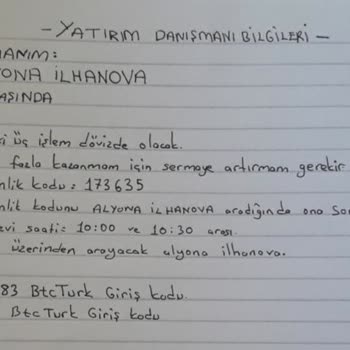 - YATIRIM DANIŞMANI BİLGİLERİ -
MANIM:
YONA İLHANOVA
AŞINDA
üç işlem dövizde olacak.
fazla kazanmam için sermaye artırmam gerekir
nlik kodu: 173635
nlik kodunu ALYONA İLHANOVA aradığında ona
evi saati: 10:00 ve 10:30 arası.
üzerinden arayacak alyona ilhanova.
83 BtcTurk Giriş kodu.
BtcTurk Giriş kodu